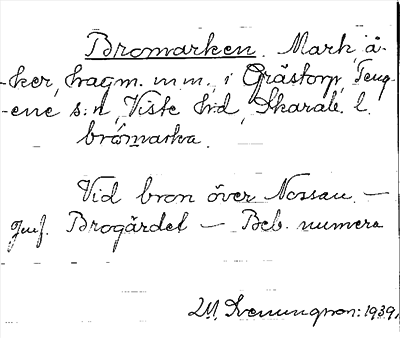 Bromarken. Mark, å-
-ker, hagm. m.m., i Grästorp, Teng-
-ene s:n, Viste hd, Skarab. l.
bròmarka.
Vid bron över Nossan. —
Jmf. Brogärdet — Beb. numera
M. Svenungson: 1939.